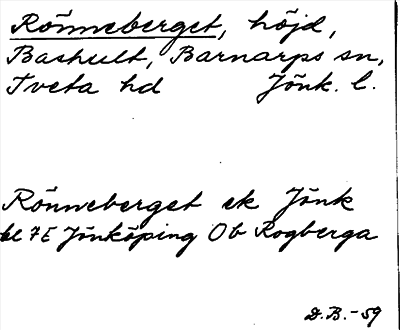 Rönneberget, höjd,
Bashult, Barnarps sn,
Tveta hd Jönk. l.
Rönneberget ek Jönk
bl 7E Jönköping Ob Rogberga
D.B.-59